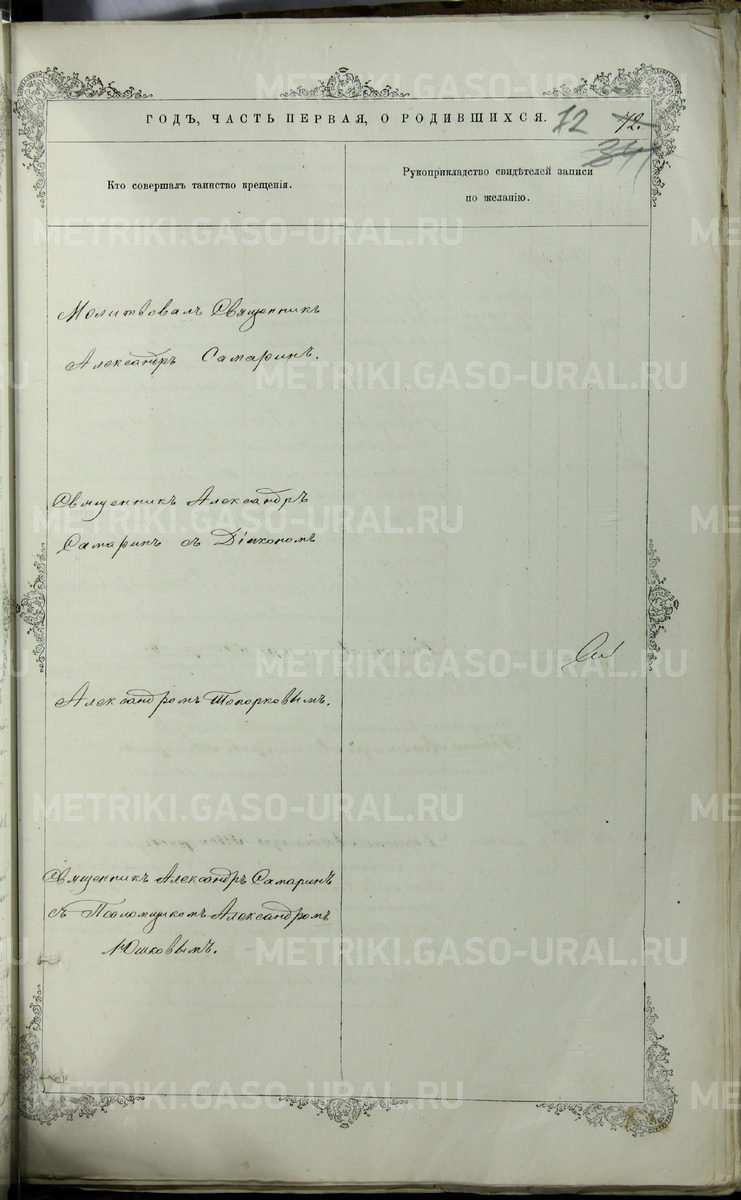 ГОДЪ, ЧАСТЬ ПЕРВАЯ, О РОДИВШИХСЯ. 72 42.
34
Кто совершалъ таинство крещенія.
Рукоприкладство свидѣтелей записи
по желанію.
Молитвовалъ Священникъ
Александръ Самаринъ.
Священникъ Александръ
Самаринъ съ Діакономъ
Александромъ Топорковымъ.
Священникъ Александръ Самаринъ
съ Псаломщикомъ Александромъ
Юшковымъ.
METRIKI.GASO-URAL.RU
METRIKI.GASO-URAL.RU
METRIKI.GASO-URAL.RU
METRIKI.GASO-URAL.RU
METRIKI.GASO-URAL.RU
METRIKI.GASO-URAL.RU
METRIKI.GASO-URAL.RU
METRIKI.GASO-URAL.RU